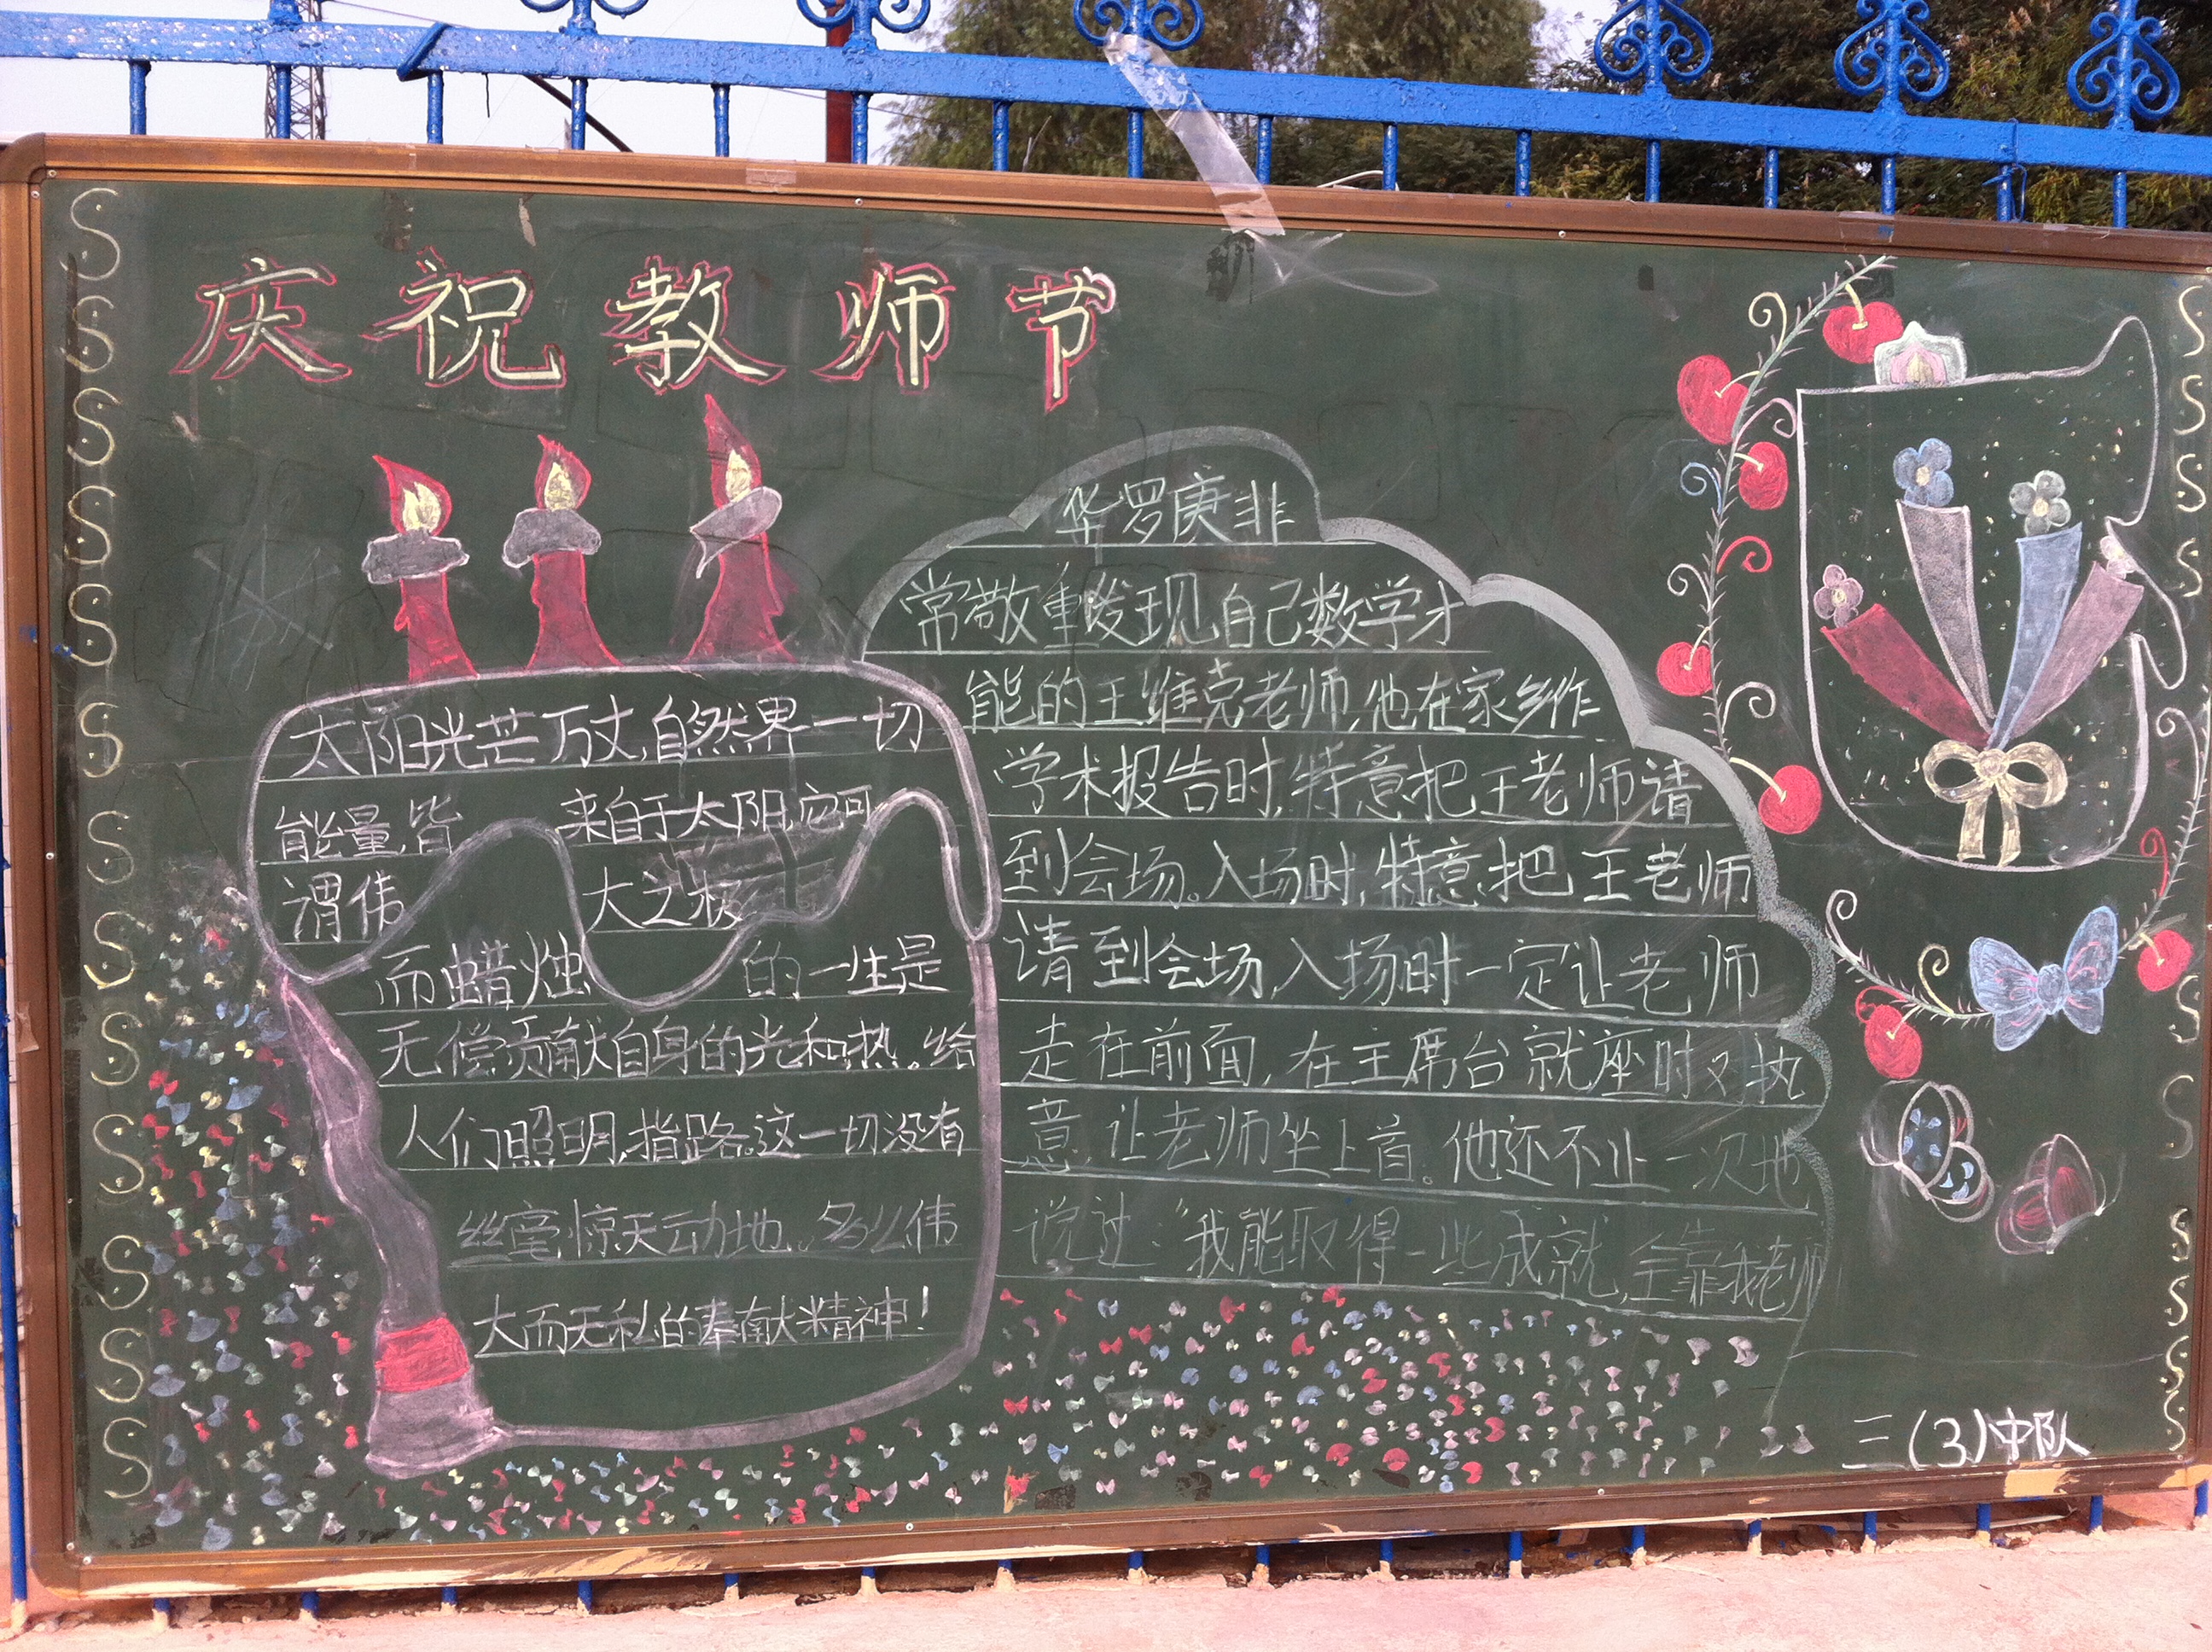 庆祝教师节
太阳光芒万丈,自然界一切
能量,皆来自于太阳,它可
谓伟大之极
而蜡烛的一生是
无偿贡献自身的光和热。给
人们照明,指路。这一切没有
丝毫惊天动地。多么伟
大而无私的奉献精神!
华罗庚非
常敬重发现自己数学才
能的王维克老师,他在家乡作
学术报告时,特意把王老师请
到会场。入场时,特意把王老师
请到会场,入场时一定让老师
走在前面,在主席台就座时又执
意让老师坐上首。他还不止一次地
说过:“我能取得一些成就,全靠我老师
三(3)中队